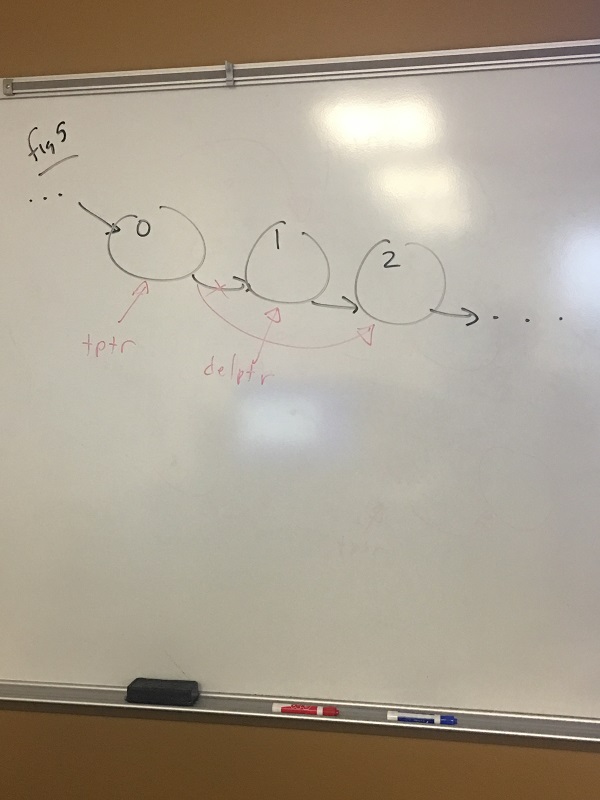 fig 5
...
0
1
2
. . . .
tptr
delptr